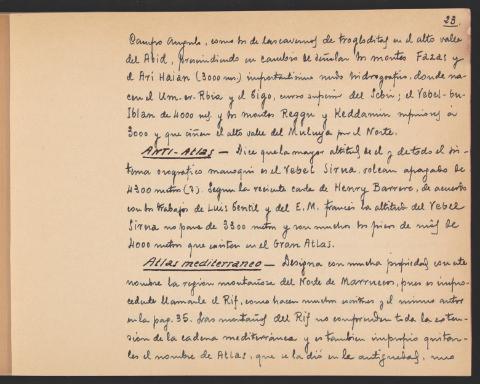 23.
Campo Angulo, como los de las cavernas de trogloditas en el alto valle
del Abid, prescindiendo en cambio de señalar los montes Fazas y
el Ari Haian (3000 ms.) importantísimo nudo hidrográfico, donde na-
cen el Um-er-Rbia y el Gigo, curso superior del Sebú; el Yebel-bu-
Iblan de 4000 ms. y los montes Reggu y Keddamin superiores á
3000 y que ciñen el alto valle del Muluya por el Norte.
ANTI-Atlas — Dice que la mayor altitud de el y de todo el sis-
tema orográfico marroquí es el Yebel Sirua, volcan apagado de
4300 metros (?). Segun la reciente carta de Henry Barrere, de acuerdo
con los trabajos de Luis Gentil y del E.M. francés la altitud del Yebel
Sirua no pasa de 3300 metros y son muchos los picos de más de
4000 metros que existen en el Gran Atlas.
Atlas mediterraneo — Designa con mucha propiedad con este
nombre la region montañosa del Norte de Marruecos, pues es impro-
cedente llamarle el Rif, como hacen muchos escritores y el mismo autor
en la pag. 35. Las montañas del Rif no comprenden toda la exten-
sion de la cadena mediterránea y es tambien impropio quitar-
les el nombre de Atlas, que se la dió en la antigüedad, uno